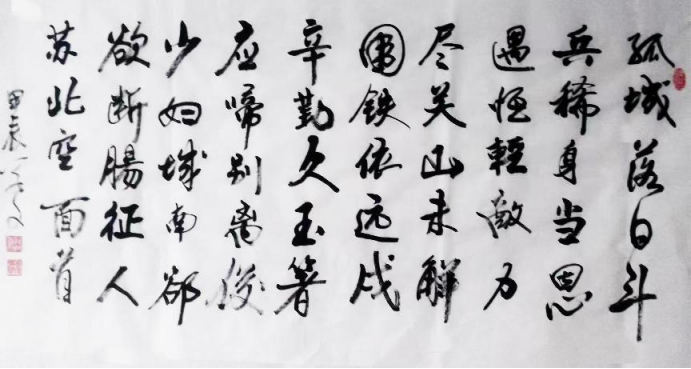 孤城落日斗
兵稀身当恩
遇恒輕敵力
尽关山未解
圍铁依远戍
辛勤久玉箸
应啼别离後
少妇城南郤
欲断腸征人
苏北空面首